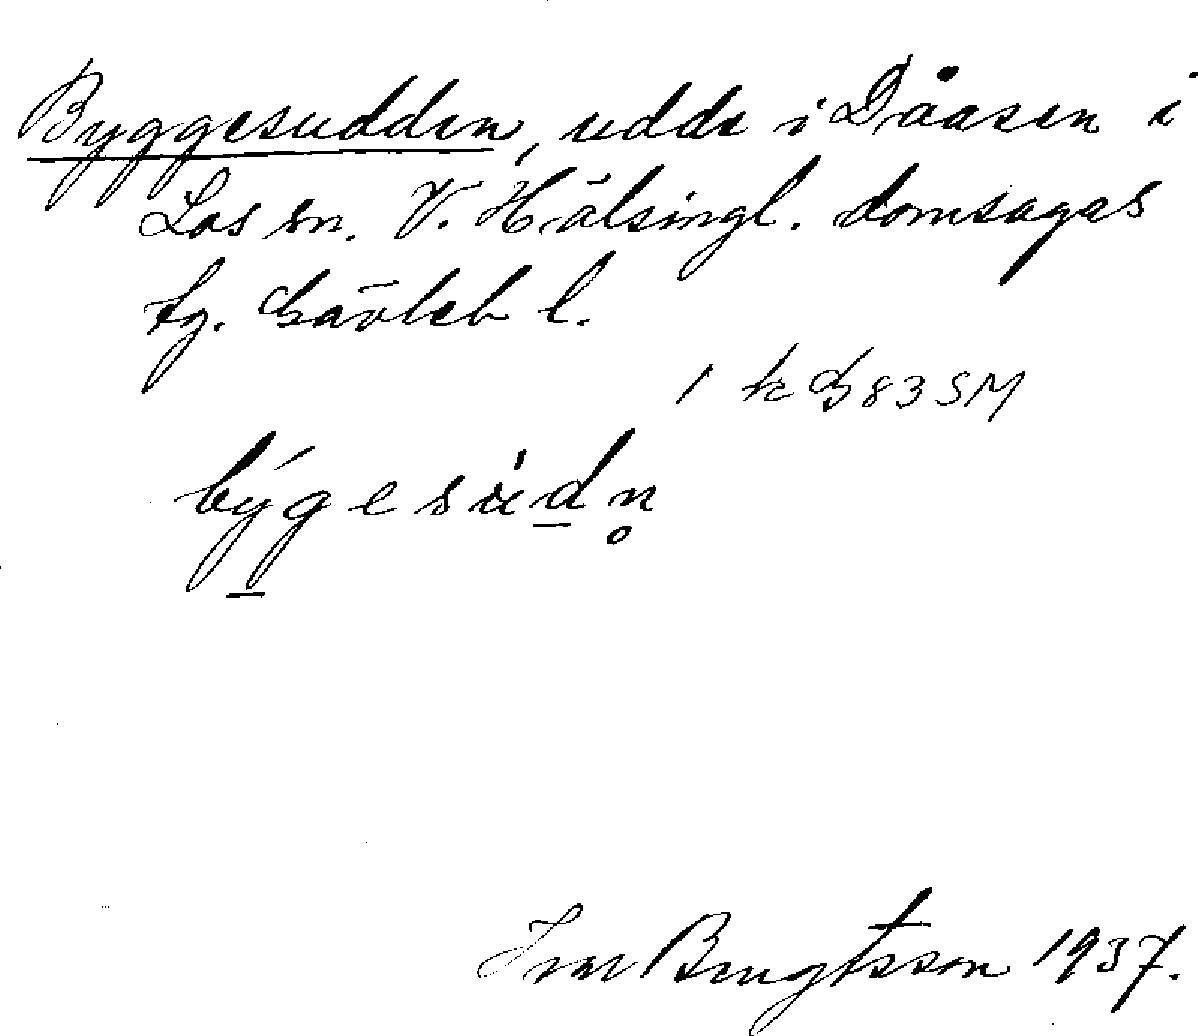 Byggesudden, udde i Dåasen i
Los sn. V. Hälsingl. domsagas
tg. Gävleb l.
1 k G 83 SM
býgesùdn̥
Ivar Bengtsson 1937.